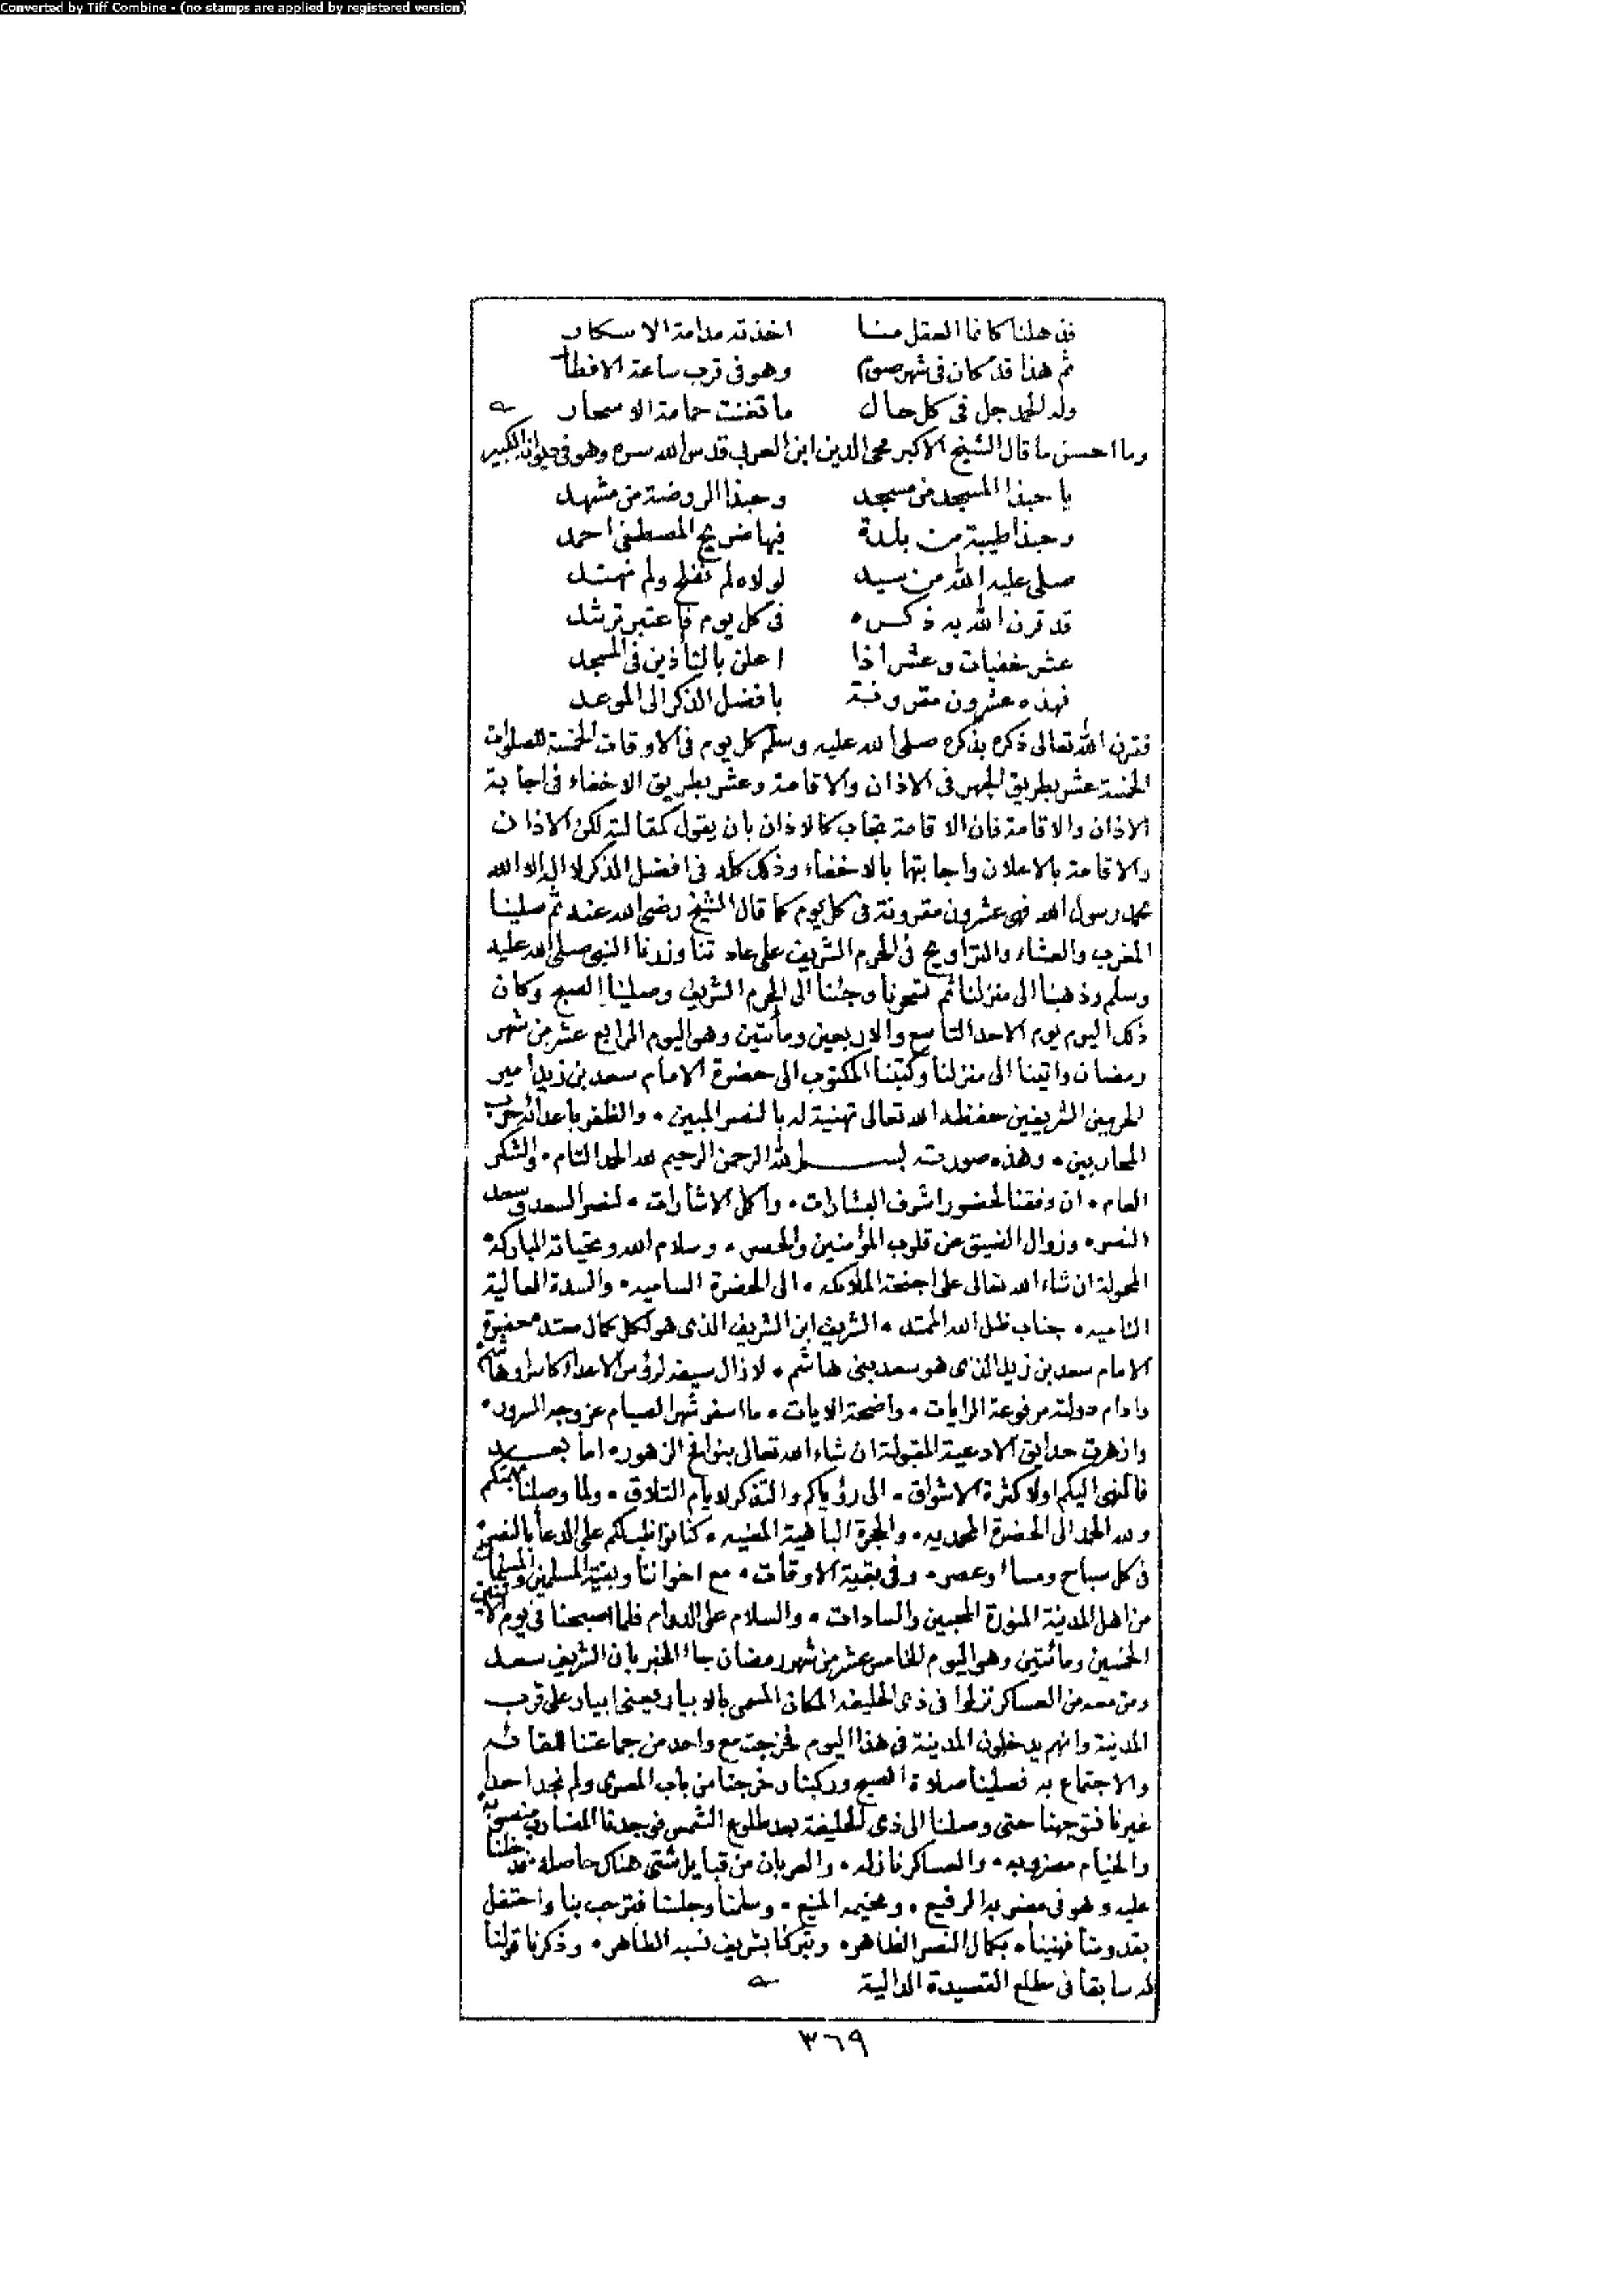 Converted by Tiff Combine - (no stamps are applied by registered version)
فذهلنا كانما العقل منا اخذته مدامة الاسكار
ثم هذا قد كان فى شهر صوم وهو فى قرب ساعة الافطار
وله الحمد جل فى كل حال ما تغنت حمامة الاسحار
وما احسن ما قال الشيخ الاكبر محى الدين ابن العربى قدس الله سره وهو فى ديوانه الكبير
يا حبذا المسجد من مسجد وحبذا الروضة من مشهد
وحبذا طيبة من بلدة فيها ضريح المصطفى احمد
صلى عليه الله من سيد لولاه لم نفلح ولم نهتد
قد قرن الله به ذكره فى كل يوم فاعتبر ترشد
عشر خفيات وعشر اذا اعلن بالتأذين فى المسجد
فهذه عشرون مقرونة بافضل الذكر الى الموعد
فقرن الله تعالى ذكره بذكره صلى الله عليه وسلم كل يوم فى الاوقات الخمسة للصلوات
الخمسة عشر بطريق الجهر فى الاذان والاقامة وعشر بطريق الاخفاء فى اجابة
الاذان والاقامة فان الاقامة تجاب كالاذان بان يقول كمقالته لكن الاذان
والاقامة بالاعلان واجابتها بالاخفاء وذلك كله فى افضل الذكر لا اله الا الله
محمد رسول الله فهى عشرون مقرونة فى كل يوم كما قال الشيخ رضى الله عنه ثم صلينا
المغرب والعشاء والتراويح فى الحرم الشريف على عادتنا وزرنا النبى صلى الله عليه
وسلم وذهبنا الى منزلنا ثم تسحرنا وجئنا الى الحرم الشريف وصلينا الصبح وكان
ذلك اليوم يوم الاحد التاسع والاربعين ومأتين وهو اليوم الرابع عشر من شهر
رمضان واتينا الى منزلنا وكتبنا المكتوب الى حضرة الامام سعد بن زيد امير
الحرمين الشريفين حفظه الله تعالى تهنية له بالنصر المبين ۰ والظفر باعدائه حرب
المحاربين ۰ وهذه صورته بسم الله الرحمن الرحيم لله الحمد التام ۰ والشكر
العام ۰ ان وفقنا لحضور اشرف البشارات ۰ واكل الاشارات ۰ لنصر السعد وسعد
النصر ۰ وزوال الضيق عن قلوب المؤمنين والحصر ۰ وسلام الله وتحياته المباركة
المحولة ان شاء الله تعالى على اجنحة الملائكه ۰ الى الحضرة الساميه ۰ والسدة العالية
الناميه ۰ جناب ظل الله الممتد ۰ الشريف ابن الشريف الذى هو لكل كمال مستعد حضرة
الامام سعد بن زيد الذى هو سعد بنى هاشم ۰ لا زال سيفه لرؤس الاعداء كاسرا وهاشم ۰
وادام دولته مرفوعة الرايات ۰ واضحة الايات ۰ ما اسفر شهر الصيام عن وجه السرور ۰
وازهرت حدايق الادعية المقبولة ان شاء الله تعالى بنوافح الزهور ۰ اما بعد
فالمنهى اليكم اولا كثرة الاشواق ۰ الى رؤياكم والتذكر لايام التلاق ۰ ولما وصلنا
ولله الحمد الى الحضرة المحمديه ۰ والحجرة الباهية المضيه ۰ كنا نواظب لكم على الدعا بالنصر
فى كل صباح ومساء وعصر ۰ وفى بقية الاوقات ۰ مع اخواننا وبقية المسلمين والمسلمات
من اهل المدينة المنورة المحبين والسادات ۰ والسلام على الدوام فلما اصبحنا فى يوم الاثنين
الخمسين ومائتين وهو اليوم الخامس عشر من شهر رمضان جاء الخبر بان الشريف سعد
ومن معه من العساكر نزلوا فى ذى الحليفة المكان المسمى بالابيار يعنى ابيار على قرب
المدينة وانهم يدخلون المدينة فى هذا اليوم فخرجت مع واحد من جماعتنا للقائه
والاجتماع به فصلينا صلاة الصبح وركبنا وخرجنا من باب المصرى ولم نجد احدا
غيرنا فتوجهنا حتى وصلنا الى ذى الحليفة بعد طلوع الشمس فوجدنا المضارب منصوبة
والخيام مضروبه ۰ والعساكر نازله ۰ والعربان من قبايل شتى هناك حاصله فدخلنا
عليه وهو فى مضربه الرفيع ۰ ومخيمه المنيع ۰ وسلمنا وجلسنا فترحب بنا واحتفل
بقدومنا فهنيناه بكمال النصر الظاهر ۰ وتبركنا بشريف نسبه الطاهر ۰ وذكرنا قولنا
له سابقا فى مطلع القصيدة الدالية
٣٦٩